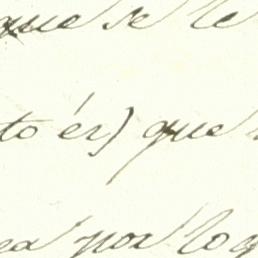 que se le
to és) que
por lo q